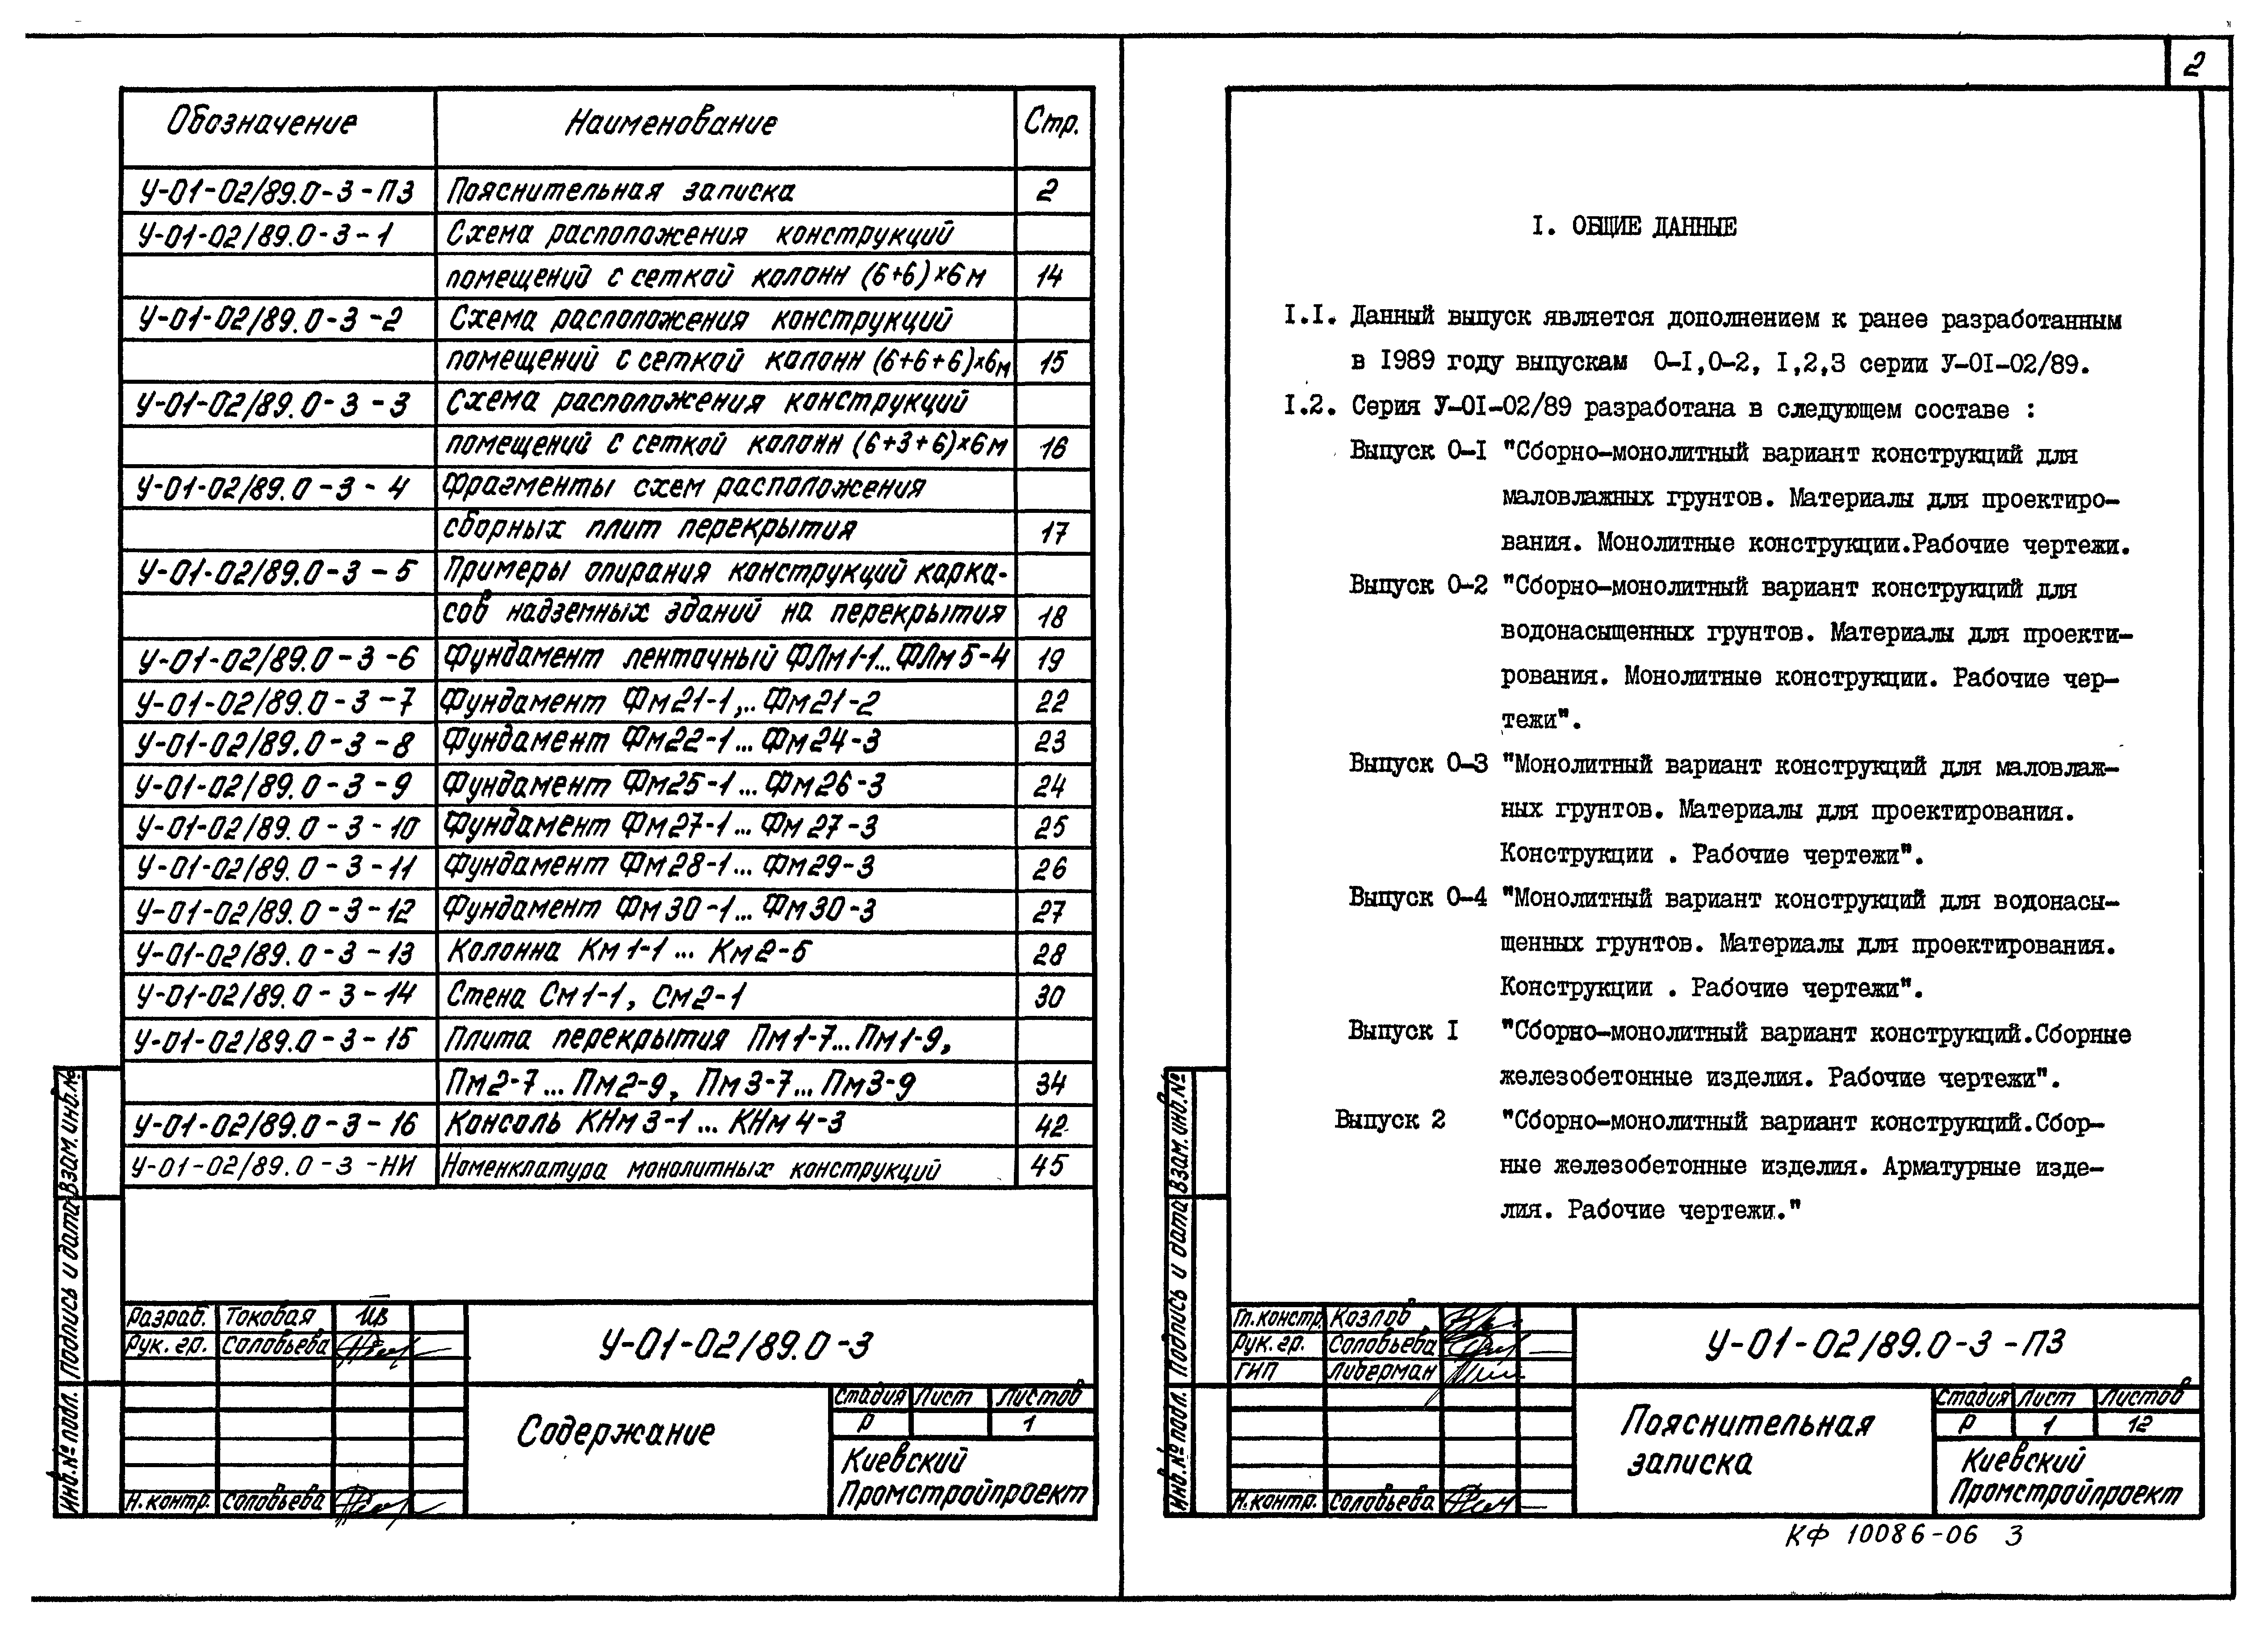 Обозначение Наименование Стр.
У-01-02/89.0-3-ПЗ Пояснительная записка 2
У-01-02/89.0-3-1 Схема расположения конструкций
помещений с сеткой колонн (6+6)×6м 14
У-01-02/89.0-3-2 Схема расположения конструкций
помещений с сеткой колонн (6+6+6)×6м 15
У-01-02/89.0-3-3 Схема расположения конструкций
помещений с сеткой колонн (6+3+6)×6м 16
У-01-02/89.0-3-4 Фрагменты схем расположения
сборных плит перекрытия 17
У-01-02/89.0-3-5 Примеры опирания конструкций карка-
сов надземных зданий на перекрытия 18
У-01-02/89.0-3-6 Фундамент ленточный ФЛм1-1...ФЛм5-4 19
У-01-02/89.0-3-7 Фундамент Фм21-1,..Фм21-2 22
У-01-02/89.0-3-8 Фундамент Фм22-1...Фм24-3 23
У-01-02/89.0-3-9 Фундамент Фм25-1...Фм26-3 24
У-01-02/89.0-3-10 Фундамент Фм27-1...Фм27-3 25
У-01-02/89.0-3-11 Фундамент Фм28-1...Фм29-3 26
У-01-02/89.0-3-12 Фундамент Фм30-1...Фм30-3 27
У-01-02/89.0-3-13 Колонна Км1-1...Км2-5 28
У-01-02/89.0-3-14 Стена См1-1, См2-1 30
У-01-02/89.0-3-15 Плита перекрытия Пм1-7...Пм1-9,
Пм2-7...Пм2-9, Пм3-7...Пм3-9 34
У-01-02/89.0-3-16 Консоль КНм3-1...КНм4-3 42
У-01-02/89.0-3-НИ Номенклатура монолитных конструкций 45
Взам. инв.№
Подпись и дата
Инв.№ подл.
Разраб. Токовая
Рук. гр. Соловьева
У-01-02/89.0-3
Содержание
Стадия Лист Листов
Р 1
Киевский
Промстройпроект
Н.контр. Соловьева
2
I. ОБЩИЕ ДАННЫЕ
I.I. Данный выпуск является дополнением к ранее разработанным
в 1989 году выпускам 0-I,0-2, I,2,3 серии У-0I-02/89.
I.2. Серия У-0I-02/89 разработана в следующем составе :
Выпуск 0-I "Сборно-монолитный вариант конструкций для
маловлажных грунтов. Материалы для проектиро-
вания. Монолитные конструкции.Рабочие чертежи.
Выпуск 0-2 "Сборно-монолитный вариант конструкций для
водонасыщенных грунтов. Материалы для проекти-
рования. Монолитные конструкции. Рабочие чер-
тежи".
Выпуск 0-3 "Монолитный вариант конструкций для маловлаж-
ных грунтов. Материалы для проектирования.
Конструкции . Рабочие чертежи".
Выпуск 0-4 "Монолитный вариант конструкций для водонасы-
щенных грунтов. Материалы для проектирования.
Конструкции . Рабочие чертежи".
Выпуск I "Сборно-монолитный вариант конструкций.Сборные
железобетонные изделия. Рабочие чертежи".
Выпуск 2 "Сборно-монолитный вариант конструкций.Сбор-
ные железобетонные изделия. Арматурные изде-
лия. Рабочие чертежи."
Взам. инв.№
Подпись и дата
Инв.№ подл.
Гл.констр. Козлов
Рук. гр. Соловьева
ГИП Либерман
У-01-02/89.0-3-ПЗ
Пояснительная
записка
Стадия Лист Листов
Р 1 12
Киевский
Промстройпроект
Н.контр. Соловьева
КФ 10086-06 3